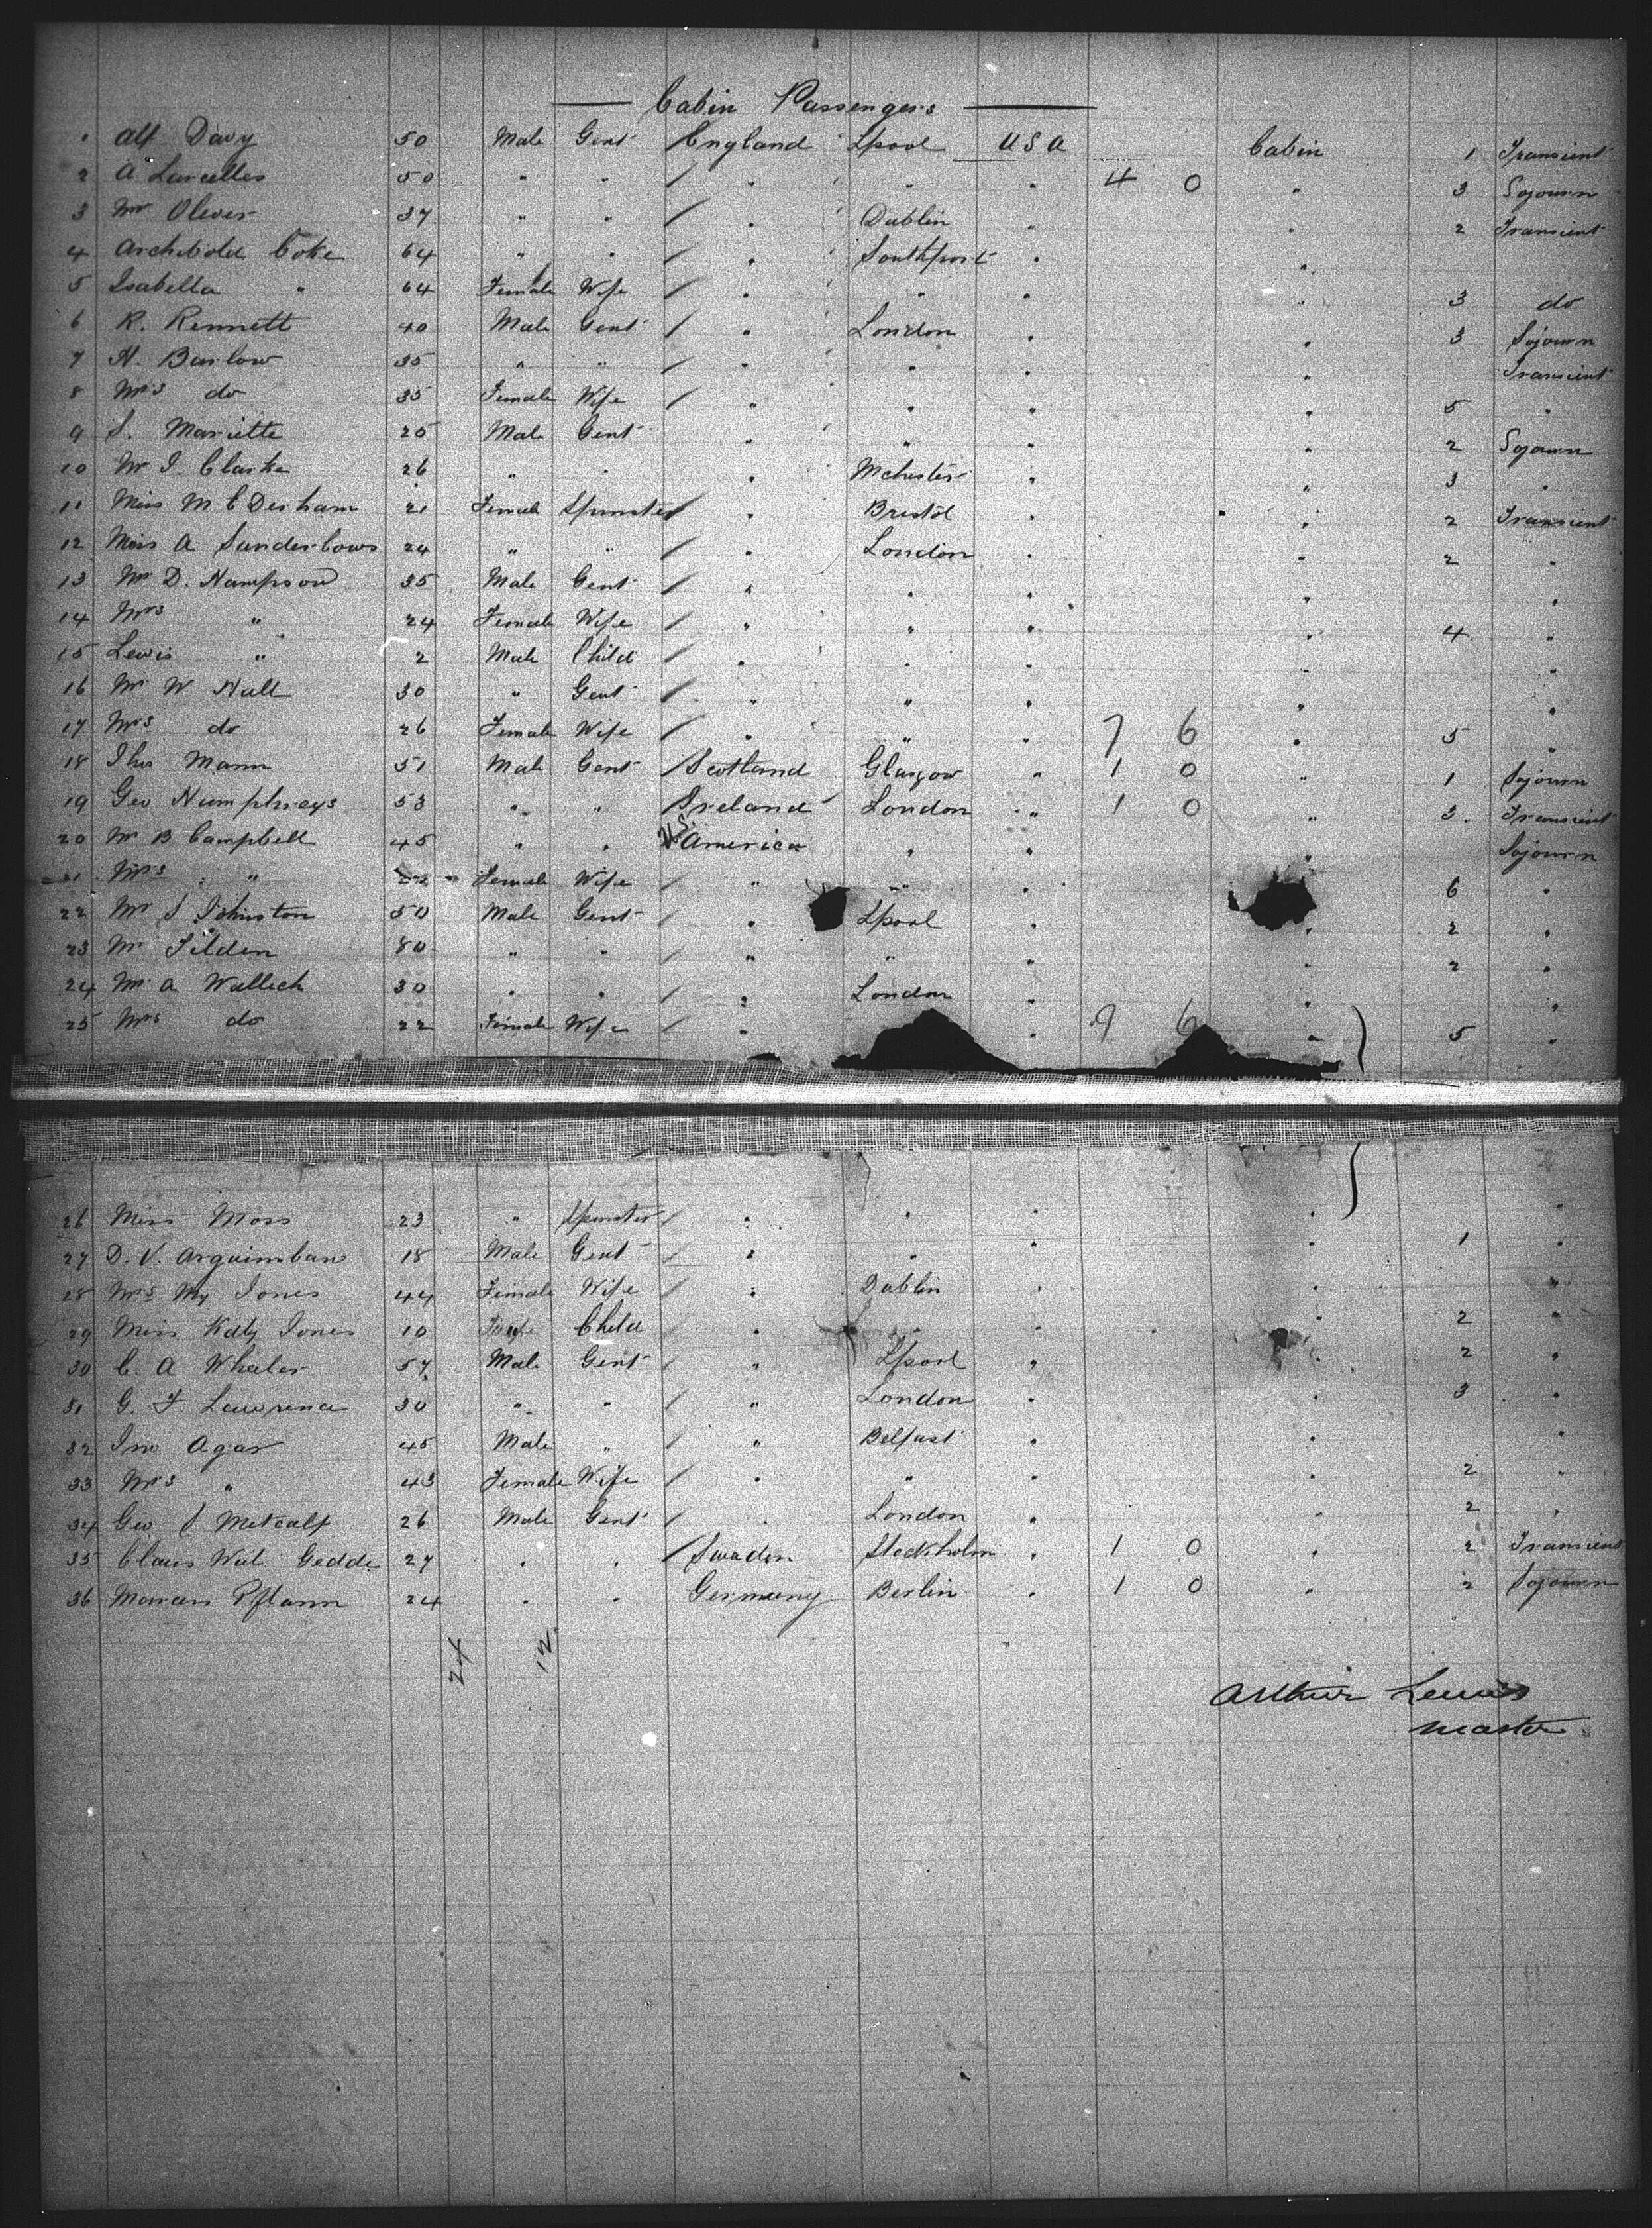 Cabin Passengers
1 Alf Davy 50 Male Gent England Lpool USA Cabin 1 Transient
2 A Lascelles 50 " " / " " " 4 0 " 3 Sojourn
3 Mr Oliver 37 " " / " Dublin " " 2 Transient
4 Archibold Coke 64 " " / " Southport " "
5 Isabella " 64 Female Wife / " " " " 3 do
6 R. Rennett 40 Male Gent / " London " " 3 Sojourn
7 H. Barlow 35 " " / " " " " Transient
8 Mrs do 35 Female Wife / " " " " 5 "
9 S. Mariette 25 Male Gent " " " " 2 Sojourn
10 Mr I. Clarke 26 " " " Mchester " " 3 "
11 Miss M E Derham 21 Female Spinster / " Bristol " " 2 Transient
12 Miss A 24 " " / " London " " 2 "
13 Mr D. Hampson 35 Male Gent / " " " " "
14 Mrs " 24 Female Wife / " " " " 4 "
15 Lewis " 2 Male Child / " " " " "
16 Mr W Hull 30 " Gent / " " " " "
17 Mrs do 26 Female Wife / " " " 7 6 " 5 "
18 Thos Mann 51 Male Gent / Scotland Glasgow " 1 0 " 1 Sojourn
19 Geo Humphreys 53 " " Ireland London " 1 0 " 3 Transient
20 Mr B Campbell 45 " " U.S. America " " " Sojourn
21 Mrs " 22 Female Wife / " " " 6 "
22 Mr J Johnston 50 Male Gent / " Lpool " " 2 "
23 Mr Tilden 80 " " / " " " " 2 "
24 Mr A Wallech 30 " " / " London " " "
25 Mrs do 22 Female Wife / " " 9 6 " 5 "
26 Miss Moss 23 " Spinster / " " " " "
27 D. V. Arguimbau 18 Male Gent / " " " " 1 "
28 Mrs My Jones 44 Female Wife / " Dublin " " "
29 Miss Kdty Jones 10 Child " " " " 2 "
30 C. A Wheeler 57 Male Gent / " Lpool " " 2 "
31 G. F Lawrence 30 " " / " London " " 3 "
32 Jno Agar 45 Male " / " Belfast " " "
33 Mrs " 43 Female Wife / " " " " 2 "
34 Geo J Metcalf 26 Male Gent / " London " " 2 "
35 Claus Wal Gedde 27 " " Sweden Stockholm " 1 0 " 2 Transient
36 Marcus Pflaum 24 " " Germany Berlin " 1 0 " 2 Sojourn
24 12
Arthur Lewis
Master